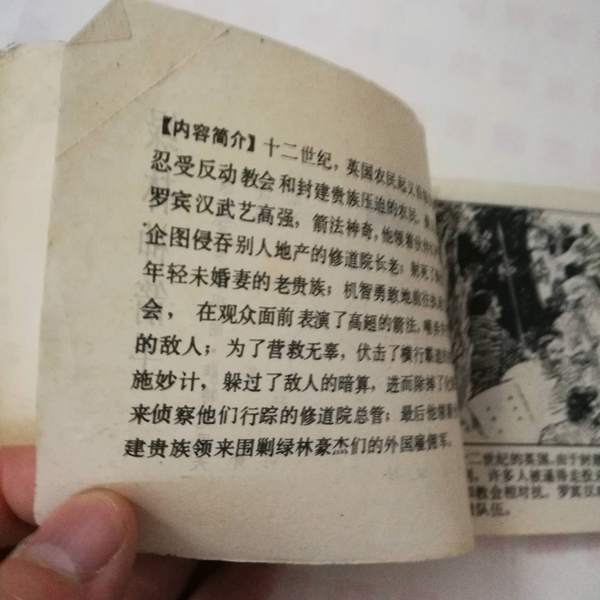 【内容简介】十二世纪，英国农民起义
忍受反动教会和封建贵族压迫的农民
罗宾汉武艺高强，箭法神奇，他领着伙伴
企图侵吞别人地产的修道院长老；射死了
年轻未婚妻的老贵族；机智勇敢地前往
会，在观众面前表演了高超的箭法，嘲弄
的敌人；为了营救无辜，伏击了横行霸道
施妙计，躲过了敌人的暗算，进而除掉了化
来侦察他们行踪的修道院总管；最后他领着
建贵族领来围剿绿林豪杰们的外国雇佣军。
二世纪的英国，由于封建
许多人被逼得走投
教会相对抗。罗宾汉
队伍。